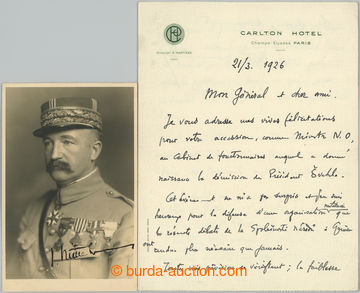 CARLTON HOTEL
Champs Elysées PARIS
21/3. 1926
Mon Général et cher ami.
Je vous adresse mes vives félicitations
pour votre accession, comme Ministre N.O,
au Cabinet de fonctionnaires auquel a donné
naissance la démission du Président Švehla.
Cet ne m'a pas surpris et j'en suis
heureux pour la défense d'une organisation militaire que
les récents débats de la
ont rendue plus nécessaire que jamais.
Toutes se vérifient ; la faiblesse
© burda-auction.com